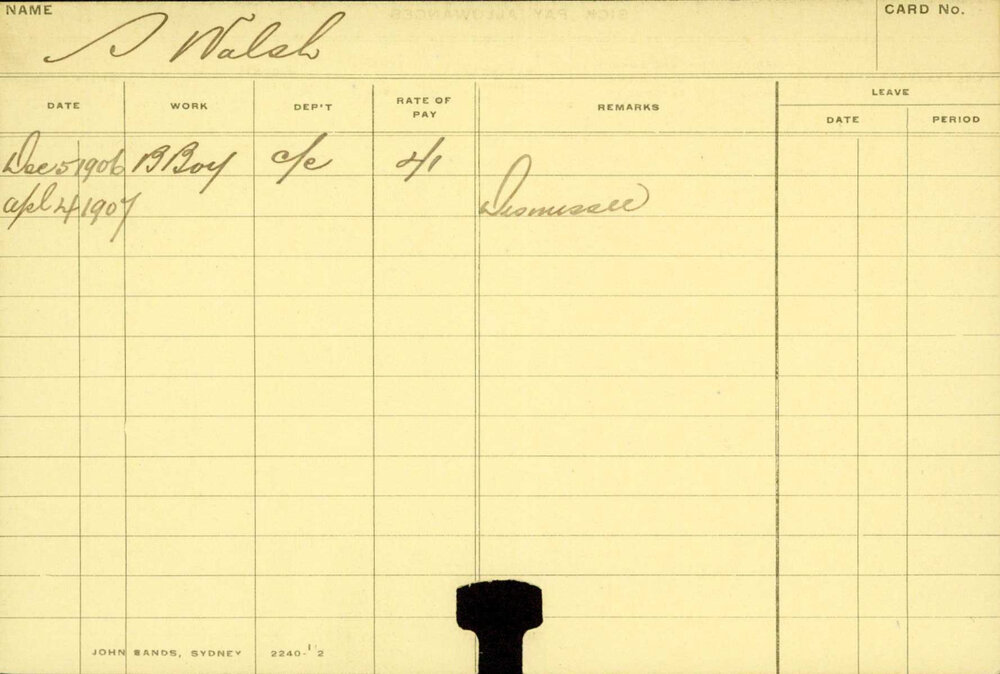 NAME
S Walsh
CARD No.
DATE WORK DEP'T RATE OF PAY REMARKS LEAVE
DATE PERIOD
Dec 5 1906 B Boy c/c 4/1
Apl 4 1907 Dismissed
JOHN SANDS, SYDNEY 2240-12